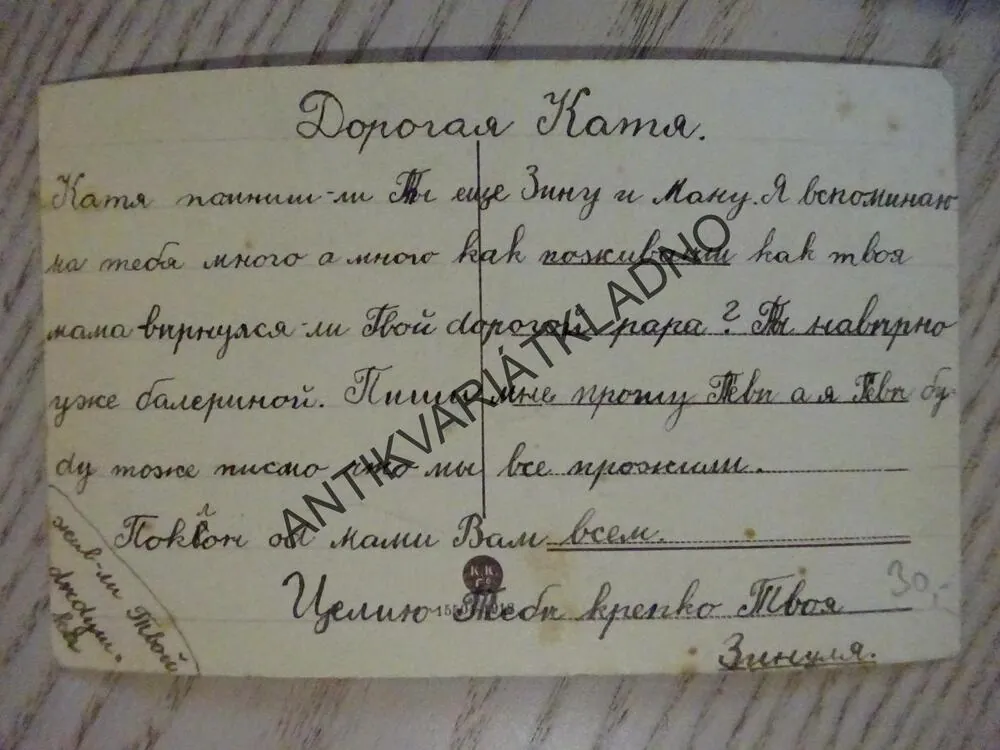 Дорогая Катя.
Катя помниш-ли Ты еще Зину и Ману. Я вспоминаю
на тебя много а много как поживаеш как твоя
мама вернулся-ли Твой дорогой papa? Ты наверно
уже балериной. Пиши мне прошу Тебя а я Тебе бу-
ду тоже писмо что мы все прожили.
Поклон от мами Вам всем.
Целию Тебя крепко Твоя
Зинуля.
жив-ли Твой
дждуш.
ка
K.K.
30,-
ANTIKVARIÁTKLADNO